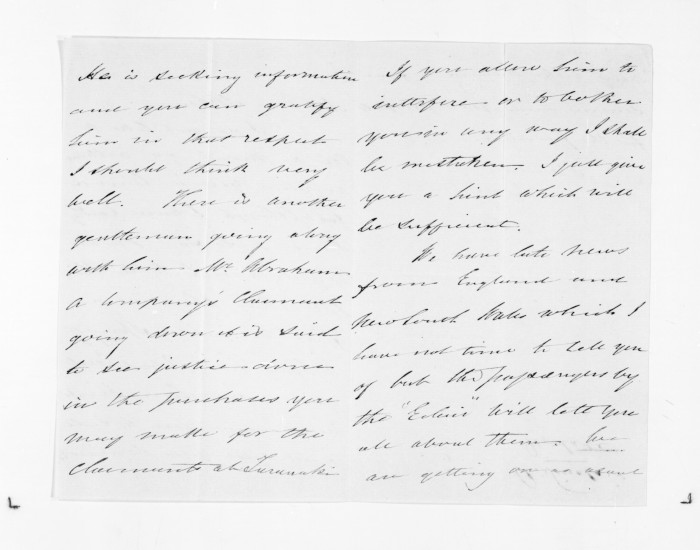 He is seeking information
and you can gratify
him in that respect
I should think very
well. There is another
gentleman going along
with him Mr Abraham
a Company's Claimant
going down it is said
to see justice done
in the purchases you
may make for the
Claimants at Taranaki
If you allow him to
interfere or to bother
you in any way I shall
be mistaken. I just give
you a hint which will
be sufficient.
We have late news
from England and
New South Wales which I
have not time to tell you
of but the passengers by
the " " will tell you
all about them. We
are getting on as usual